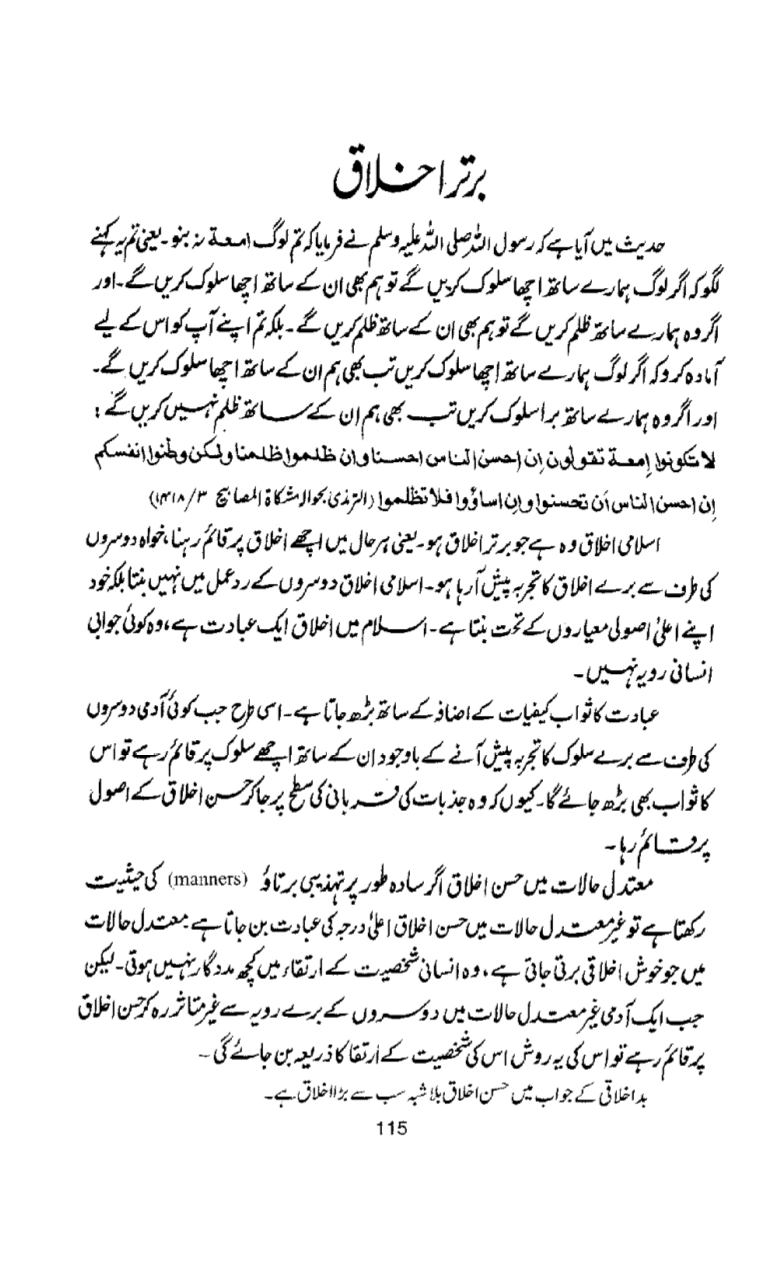 برتر اخلاق
حدیث میں آیا ہے کہ رسول اللہ صلی اللہ علیہ وسلم نے فرمایا کہ تم لوگ امعة نہ بنو۔ یعنی تم یہ کہنے
لگو کہ اگر لوگ ہمارے ساتھ اچھا سلوک کریں گے تو ہم بھی ان کے ساتھ اچھا سلوک کریں گے۔ اور
اگر وہ ہمارے ساتھ ظلم کریں گے تو ہم بھی ان کے ساتھ ظلم کریں گے۔ بلکہ تم اپنے آپ کو اس کے لیے
آمادہ کرو کہ اگر لوگ ہمارے ساتھ اچھا سلوک کریں تب بھی ہم ان کے ساتھ اچھا سلوک کریں گے۔
اور اگر وہ ہمارے ساتھ برا سلوک کریں تب بھی ہم ان کے ساتھ ظلم نہیں کریں گے :
لا تكونوا إمعة تقولون إن احسن الناس احسنا وإن ظلموا ظلمنا ولكن وطنوا انفسكم
إن احسن الناس أن تحسنوا وإن اساؤوا فلا تظلموا (الترمذی بحوالہ مشکاۃ المصابیح ۳/۱۴۱۸)
اسلامی اخلاق وہ ہے جو برتر اخلاق ہو۔ یعنی ہر حال میں اچھے اخلاق پر قائم رہنا، خواہ دوسروں
کی طرف سے برے اخلاق کا تجربہ پیش آرہا ہو۔ اسلامی اخلاق دوسروں کے ردعمل میں نہیں بنتا بلکہ خود
اپنے اعلیٰ اصولی معیاروں کے تحت بنتا ہے۔ اسلام میں اخلاق ایک عبادت ہے، وہ کوئی جوابی
انسانی رویہ نہیں۔
عبادت کا ثواب کیفیات کے اضافہ کے ساتھ بڑھ جاتا ہے۔ اسی طرح جب کوئی آدمی دوسروں
کی طرف سے برے سلوک کا تجربہ پیش آنے کے باوجود ان کے ساتھ اچھے سلوک پر قائم رہے تو اس
کا ثواب بھی بڑھ جائے گا۔ کیوں کہ وہ جذبات کی قربانی کی سطح پر جا کر حسن اخلاق کے اصول
پر قائم رہا۔
معتدل حالات میں حسن اخلاق اگر سادہ طور پر تہذیبی برتاؤ (manners) کی حیثیت
رکھتا ہے تو غیر معتدل حالات میں حسن اخلاق اعلیٰ درجہ کی عبادت بن جاتا ہے۔ معتدل حالات
میں جو خوش اخلاقی برتی جاتی ہے، وہ انسانی شخصیت کے ارتقاء میں کچھ مددگار نہیں ہوتی۔ لیکن
جب ایک آدمی غیر معتدل حالات میں دوسروں کے برے رویہ سے غیر متاثر رہ کر حسن اخلاق
پر قائم رہے تو اس کی یہ روش اس کی شخصیت کے ارتقا کا ذریعہ بن جائے گی۔
بد اخلاقی کے جواب میں حسن اخلاق بلا شبہ سب سے بڑا اخلاق ہے۔
115